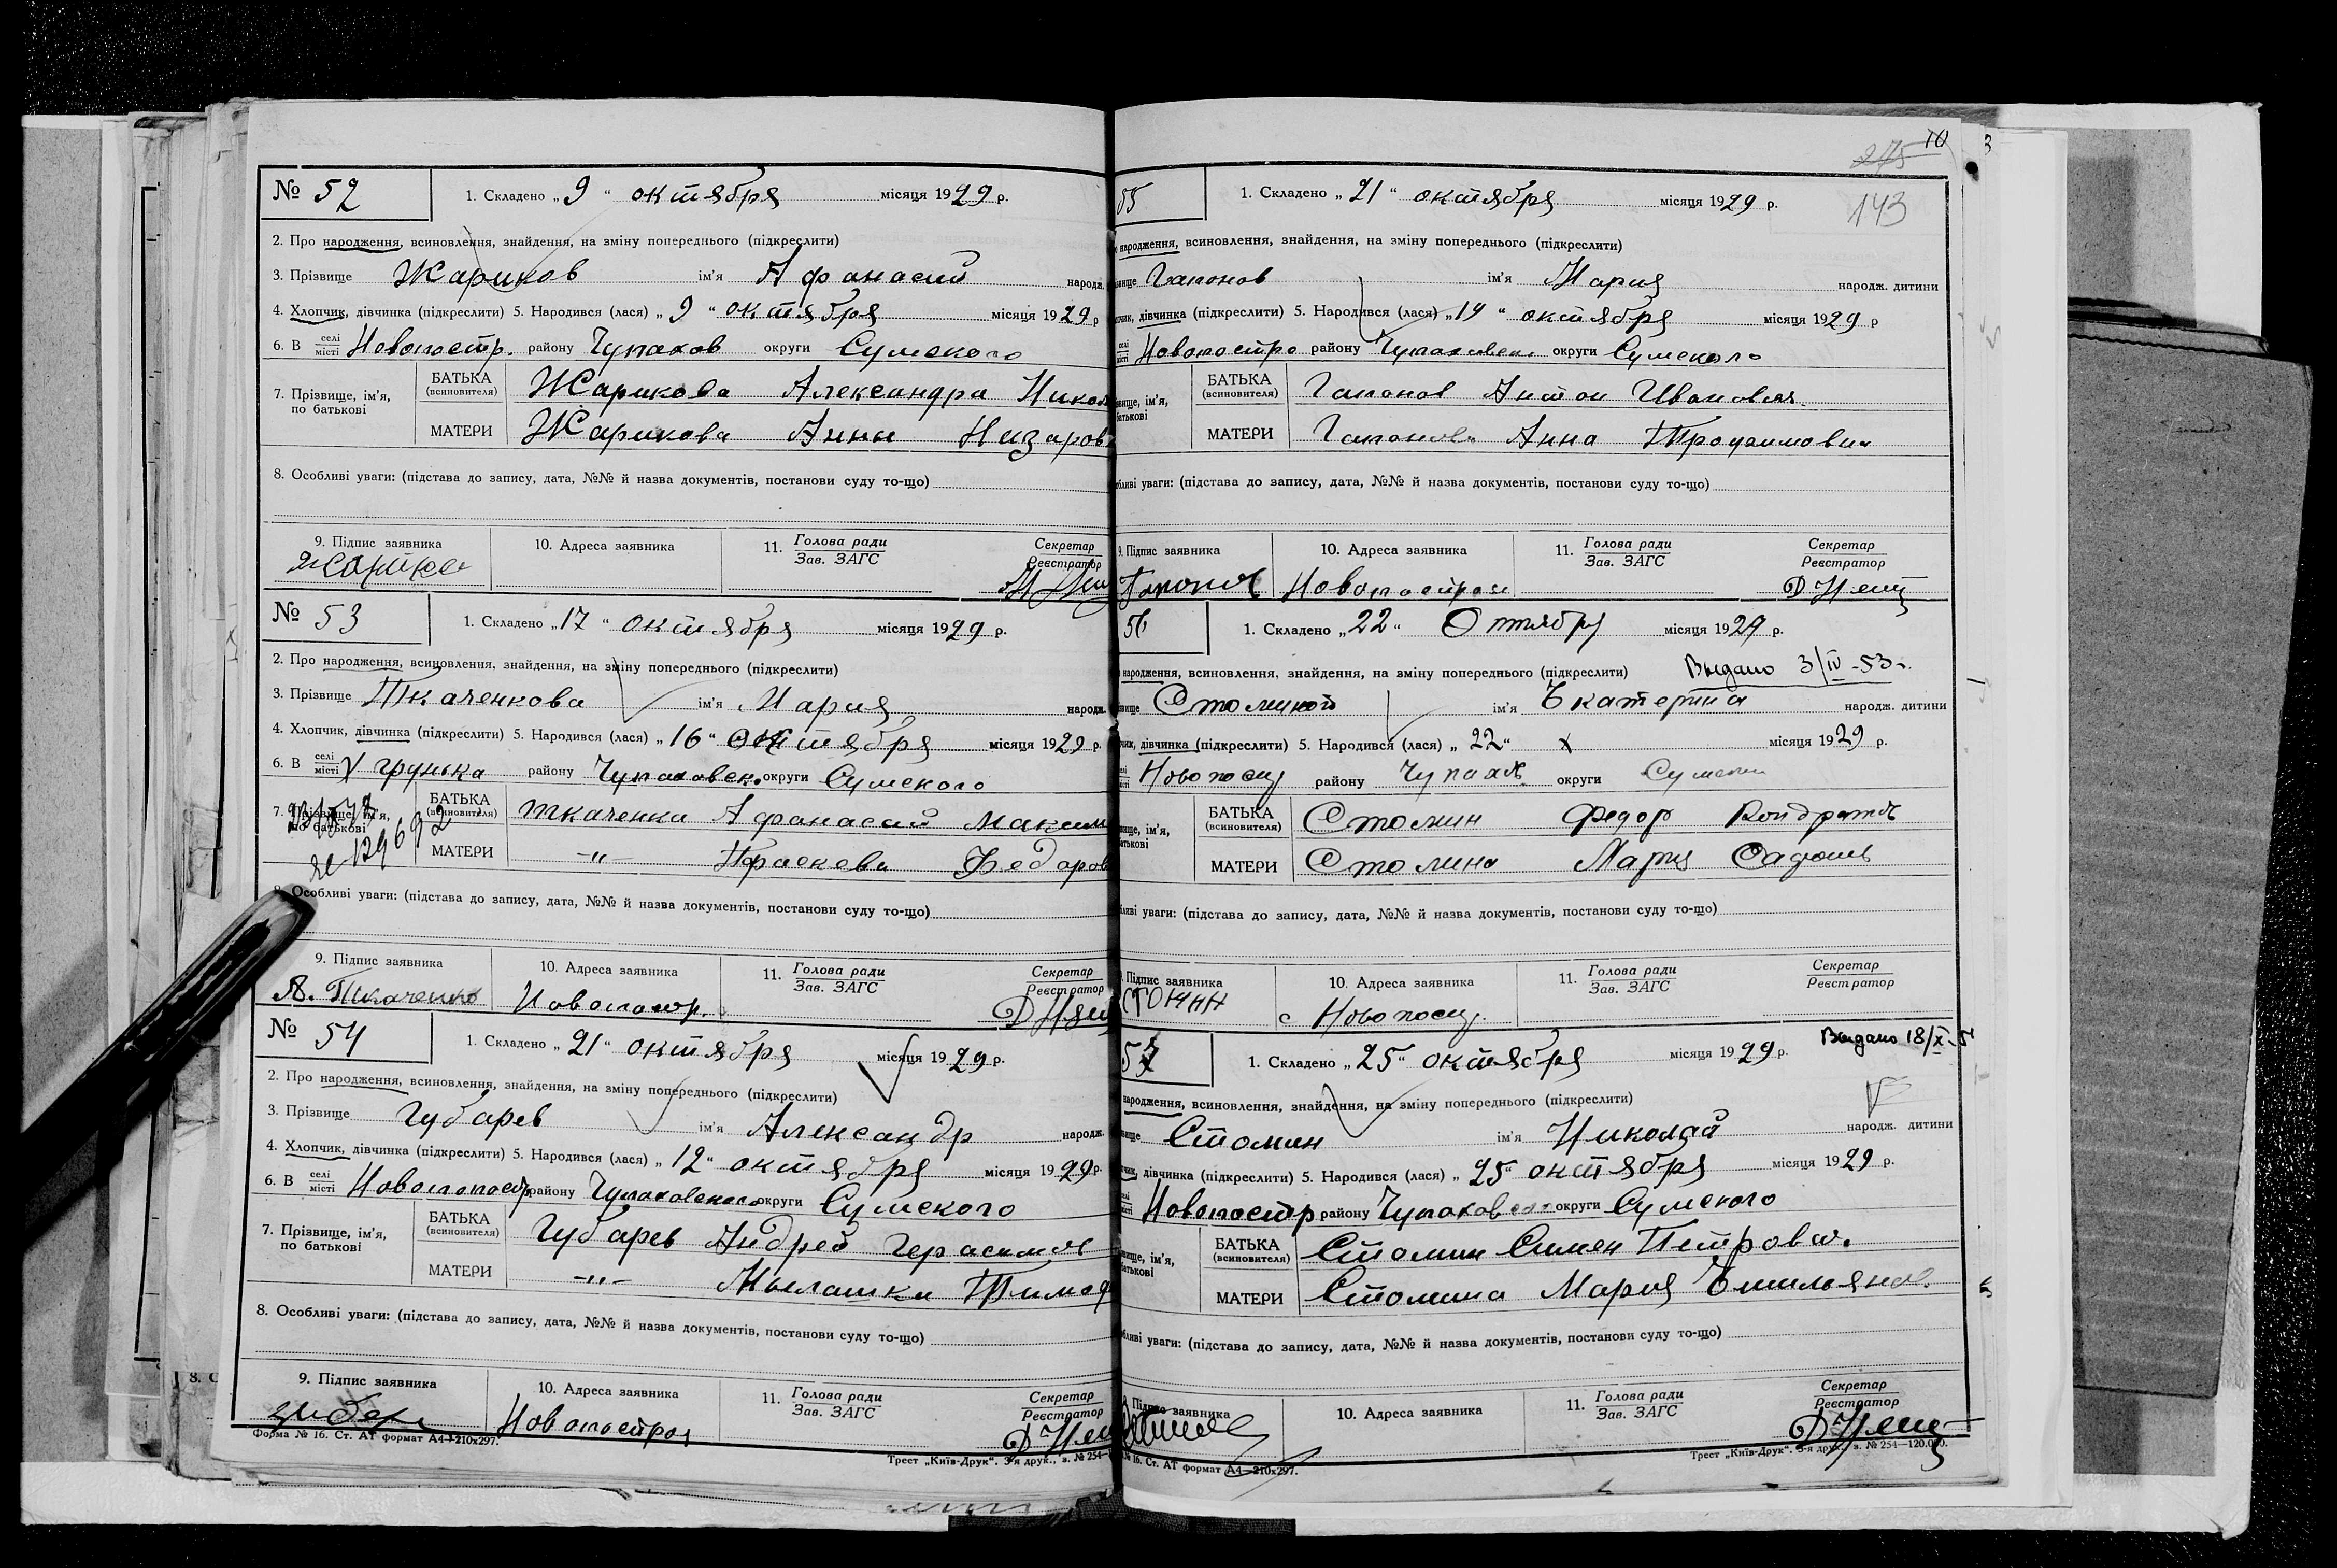 № 52
1. Складено „9“ октября місяця 1929 р.
2. Про народження, всиновлення, знайдення, на зміну попереднього (підкреслити)
3. Прізвище Жариков ім'я Афанасий народж.
4. Хлопчик, дівчинка (підкреслити) 5. Народився (лася) „9“ октября місяця 1929 р
6. В селі місті Новопостр. району Чупахов округи Сумского
7. Прізвище, ім'я, по батькові
БАТЬКА (всиновителя) Жарикова Александра Никол
МАТЕРИ Жарикова Анны Назаров
8. Особливі уваги: (підстава до запису, дата, №№ й назва документів, постанови суду то-що)
9. Підпис заявника
10. Адреса заявника
11. Голова ради Зав. ЗАГС
Секретар Реєстратор
№ 53
1. Складено „17“ октября місяця 1929 р.
2. Про народження, всиновлення, знайдення, на зміну попереднього (підкреслити)
3. Прізвище Ткаченкова ім'я Мария народж.
4. Хлопчик, дівчинка (підкреслити) 5. Народився (лася) „16“ октября місяця 1929 р.
6. В селі місті грунька району Чупаховск. округи Сумского
7. Прізвище, ім'я, по батькові
БАТЬКА (всиновителя) Ткаченки Афанасий Максим
МАТЕРИ –"– Праскева Федоров
8. Особливі уваги: (підстава до запису, дата, №№ й назва документів, постанови суду то-що)
9. Підпис заявника А. Ткаченко
10. Адреса заявника Новопостр.
11. Голова ради Зав. ЗАГС
Секретар Реєстратор
№ 54
1. Складено „21“ октября місяця 1929 р.
2. Про народження, всиновлення, знайдення, на зміну попереднього (підкреслити)
3. Прізвище Губарев ім'я Александр народж.
4. Хлопчик, дівчинка (підкреслити) 5. Народився (лася) „12“ октября місяця 1929 р.
6. В селі місті району Чупаховского округи Сумского
7. Прізвище, ім'я, по батькові
БАТЬКА (всиновителя) Губарев Андрей Герасимов
МАТЕРИ –"– Тимоф
8. Особливі уваги: (підстава до запису, дата, №№ й назва документів, постанови суду то-що)
9. Підпис заявника
10. Адреса заявника Новопострой
11. Голова ради Зав. ЗАГС
Секретар Реєстратор
Форма № 16. Ст. АТ формат А4–210x297.
Трест „Київ-Друк“. 3-я друк., з. № 254
10
275
143
55
1. Складено „21“ октября місяця 1929 р.
народження, всиновлення, знайдення, на зміну попереднього (підкреслити)
Гапонов ім'я Мария народж. дитини
дівчинка (підкреслити) 5. Народився (лася) „19“ октября місяця 1929 р
Новопостро району Чупаховск. округи Сумского
БАТЬКА (всиновителя) Гапонов Антон Иванович
МАТЕРИ Гапонова Анна Трофимовна
уваги: (підстава до запису, дата, №№ й назва документів, постанови суду то-що)
9. Підпис заявника
10. Адреса заявника Новопострой
11. Голова ради Зав. ЗАГС
Секретар Реєстратор
56
1. Складено „22“ Октября місяця 1929 р.
народження, всиновлення, знайдення, на зміну попереднього (підкреслити) Выдано 3/IV-53 г.
ім'я Екатерина народж. дитини
дівчинка (підкреслити) 5. Народився (лася) „22“ X місяця 1929 р.
району Чупах округи
БАТЬКА (всиновителя) Стомин Федор Кондратов
МАТЕРИ Стомина Мария
уваги: (підстава до запису, дата, №№ й назва документів, постанови суду то-що)
Підпис заявника
10. Адреса заявника
11. Голова ради Зав. ЗАГС
Секретар Реєстратор
57
1. Складено „25“ октября місяця 1929 р. Выдано 18/X-5
народження, всиновлення, знайдення, на зміну попереднього (підкреслити)
Стомин ім'я Николай народж. дитини
дівчинка (підкреслити) 5. Народився (лася) „25“ октября місяця 1929 р.
Новопостр району округи Сумского
БАТЬКА (всиновителя) Стомин Симен Петрович.
МАТЕРИ Стомина Мария Емильянов.
уваги: (підстава до запису, дата, №№ й назва документів, постанови суду то-що)
Підпис заявника
10. Адреса заявника
11. Голова ради Зав. ЗАГС
Секретар Реєстратор
№ 16. Ст. АТ формат А4–210x297.
Трест „Київ-Друк“. 3-я друк., з. № 254–120.000.